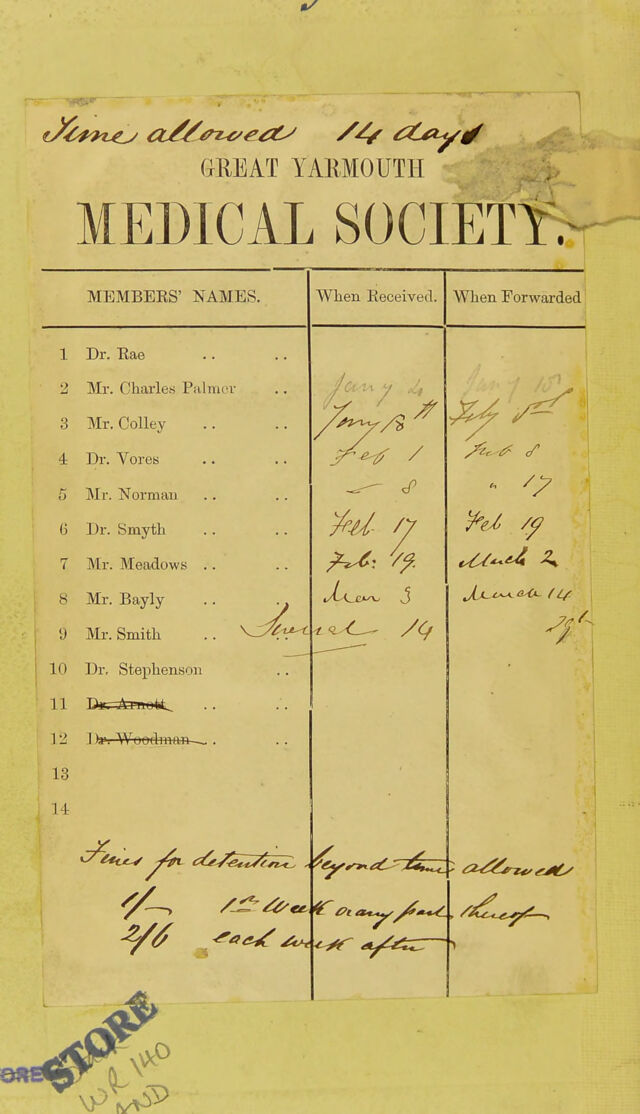 Time allowed 14 days
GREAT YARMOUTH
MEDICAL SOCIETY.
MEMBERS' NAMES. When Received. When Forwarded
1 Dr. Rae .. ..
2 Mr. Charles Palmer .. Jany 4 Jany 18
3 Mr. Colley .. .. Jany 18th Feby
4 Dr. Vores .. .. Feb 1 Feb 8
5 Mr. Norman .. .. " 8 " 17
6 Dr. Smyth .. .. Feb 17 Feb 19
7 Mr. Meadows .. .. Feb: 19. March 2
8 Mr. Bayly .. .. Mar 3 March 14
9 Mr. Smith .. .. 14 29th
10 Dr. Stephenson ..
11 Dr. Arnott .. ..
12 Dr. Woodman .. ..
13
14
Fines for detention beyond time allowed
1/- 1st Week or any part thereof
2/6 each week after
STORE
WR 140
AND